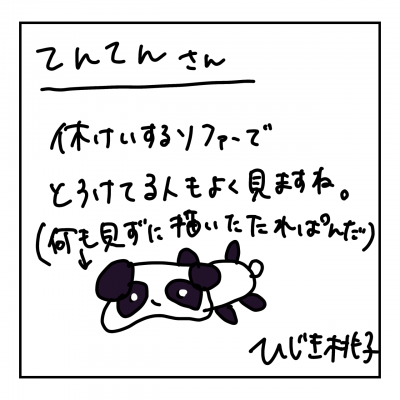 てんてん さん
休けいするソファーで
とろけてる人もよく見ますね。
(何も見ずに描いたたれぱんだ)
ひじき桃子